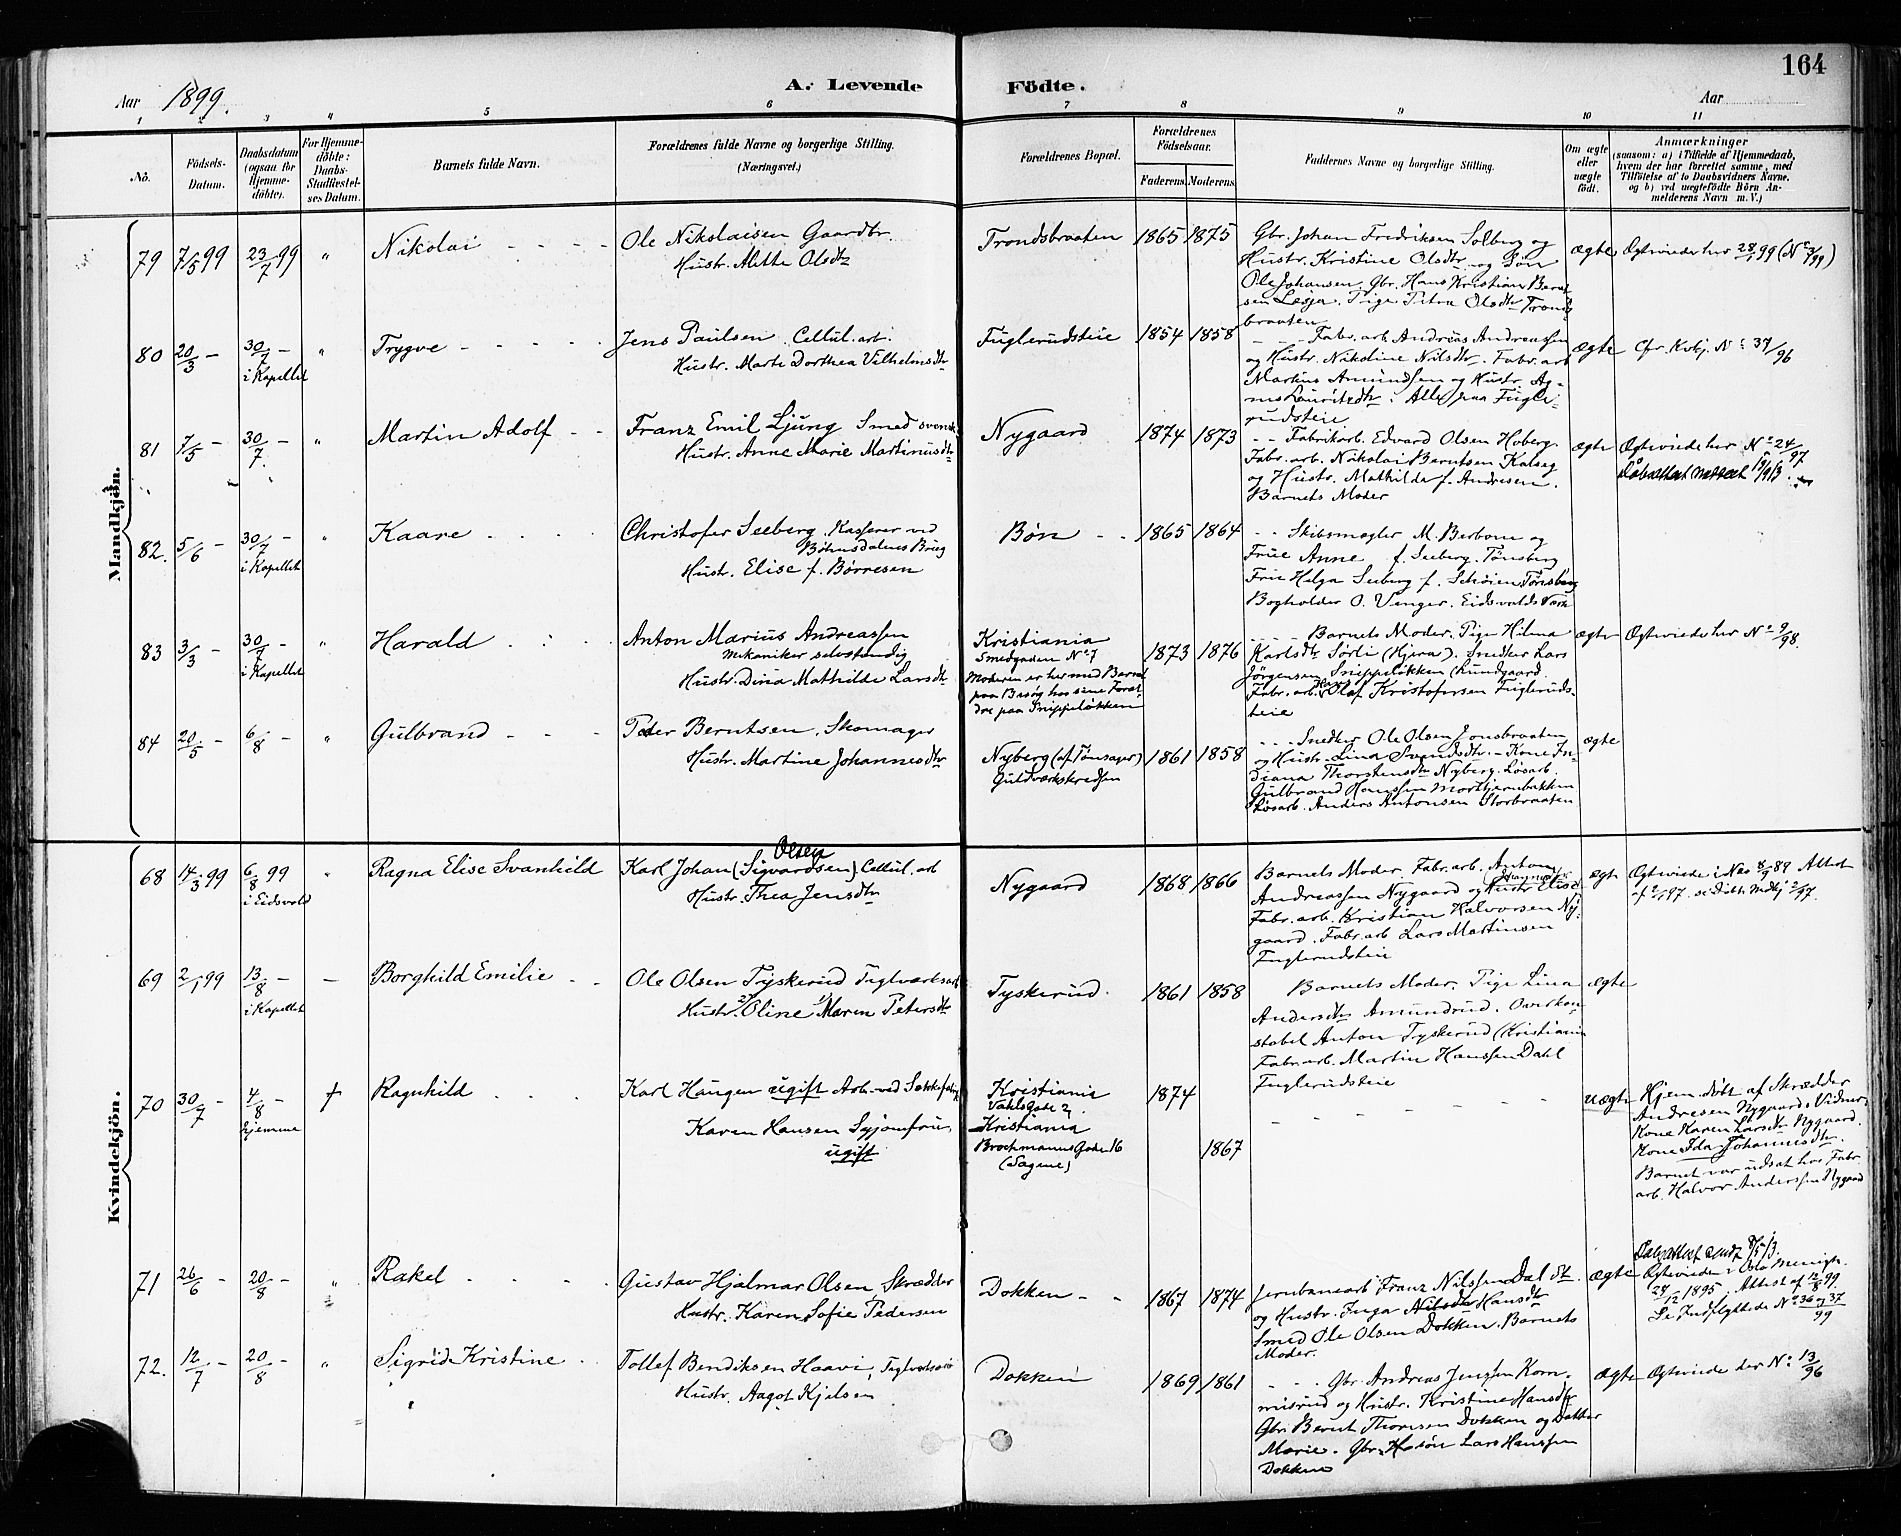 164
Aar 1899.
A. Levende Födte.
Aar
1 2 3 4 5 6 7 8 9 10 11
No.
Födsels-Datum.
Daabsdatum (ogsaa for Hjemme-döbte).
For Hjemme-döbte: Daabs-Stadfæstel-ses Datum.
Barnets fulde Navn.
Forældrenes fulde Navne og borgerlige Stilling.
(Næringsvei.)
Forældrenes Bopæl.
Forældrenes Födselsaar.
Faderens. Moderens.
Faddernes Navne og borgerlige Stilling.
Om ægte eller uægte födt.
Anmærkninger
(saasom: a) i Tilfælde af Hjemmedaab,
hvem der har forrettet samme, med
Tilföielse af to Daabsvidners Navne,
og b) ved uægtefödte Börn An-
melderens Navn m. V.)
Mandkjön.
79 7/5 99 23/7 99 " Nikolai
Ole Nikolaisen Gaardbr.
Hustr. Mette Olsdtr
Trondsbraaten 1865 1875
Gbr. Johan Fredriksen Solberg og
Hustr. Kristine Olsdtr og Søn
Ole Johansen. Gbr. Hans Kristian Bernt-
sen Lesja. Pige Petra Olsdtr Tronds
braaten
ægte Ægteviede her 28/1 99 (No 2/99)
80 20/3 - 30/7 - i Kapellet " Trygve
Jens Paulsen Cellul. arb.
Hustr. Marte Dorthea Vilhelmsdtr
Fuglerudsteie 1854 1858
Fabr. arb Andreas Andreassen
og Hustr. Nikoline Nilsdtr. Fabr. arb
Martius Amundsen og Hustr. Ag-
nes Lauritzdtr. Alle paa Fugle-
rudsteie
ægte Cfr. Kvkj. No 37/96
81 7/5 - 30/7. " Martin Adolf
Franz Emil Ljung Smed svensk
Hustr. Anne Marie Martinusdtr
Nygaard 1874 1873
Fabrikarb. Edvard Olsen Hoberg.
Fabr. arb. Nikolai Berntsen Kalseg
og Hustr. Mathilde f. Andresen.
Barnets Moder
ægte Ægteviede her No 24/97
Dåbsattest
82. 5/6 - 30/7 - i Kapellet " Kaare
Christofer Seeberg. Kasserer ved
Bøhnsdalens Brug
Hustr. Elise f. Børresen
Bøn 1865 1864
Skibsmægler M. Berbom og
Frue Anne f. Seeberg. Tønsberg
Frue Helga Seeberg f. Schøien, Tønsberg
Bogholder O. Venger. Eidsvolds Værk
83 3/3 - 30/7 - i Kapellet " Harald
Anton Marius Andreassen
Mekaniker selvstændig
Hustr. Dina Mathilde Larsdtr
Kristiania
Smedgaden No 7
Moderen er her med Barnet
paa Besøg hos sine Foræl-
dre paa Snippeløkken
1873 1876
Barnets Moder. Pige Hilma
Karlsdtr Sörli (Hjera). Snedker Lars
Jørgensen Snippeløkken (Lundgaard
Fabr. arb. Hans Olaf Kristofersen Fugleruds-
teie
ægte Ægteviede her No 9/98.
84 20/5 - 6/8 - " Gulbrand
Peder Berntsen. Skomager
Hustr. Martine Johannesdtr
Nyberg (af Tønsager)
Guldværkskredsen
1861 1858
Snedker Ole Olsen Jonsbraaten
og Hustr. Lina Svendsdtr. - Kone In-
diana Thorstensdtr Nyberg. Løsarb.
Gulbrand Hanssen Mortjernbakken
Løsarb. Anders Antonsen Storbraaten
ægte
Kvindekjön.
68 14/3 99 6/8 99 i Eidsvold " Ragna Elise Svanhild
Olsen
Karl Johan (Sigvardsen) Cellul. arb
Hustr. Thea Jensdtr
Nygaard 1868 1866
Barnets Moder. Fabr. arb. Anton
Andreassen Nygaard og Hustr Elise
Fabr. arb. Kristian Halvorsen Ny-
gaard. Fabr. arb Lars Martinsen
Fuglerudsteie
ægte Ægteviede i Nes 8/9 89 Attest
69 2/1 99 13/8 - i Kapellet - Borghild Emilie
Ole Olsen Tyskerud Teglværksarb
Hustr. Oline Maren Petersdtr
Tyskerud. 1861 1858
Barnets Moder. Pige Lina
Andersdtr Amundrud. Overkon-
stabel Anton Tyskerud (Kristiania
Fabr. arb. Martin Hanssen Dahl
Fuglerudsteie
ægte
70 30/7 4/8 - hjemme † Ragnhild
Karl Haugen ugift Arb. ved Sækkefabrik
Karen Hansen Syjomfru,
ugift
Kristiania
Vahls Gade 2.
Kristiania
Brochmanns Gade 16
(Sagene)
1874
1867
uægte
Hjem. døbt af Skrædder
Andresen Nygaard. Vidner
Kone Karen Larsdtr Nygaard.
Kone Ida Johannesdtr.
Barnet var udsat hos Fabr.
arb. Halvor Anderssen Nygaard
71 26/6 - 20/8 - " Rakel
Gustav Hjalmar Olsen. Skrædder
Hustr. Karen Sofie Pedersen
Dokken 1867 1874
Jernbanearb Franz Nilssen Dal St.
og Hustr. Inga Nilsdtr Hansdtr
Smed Ole Olsen Dokken. Barnets
Moder.
ægte
Daabsattest sendt 8/5 13.
Ægteviede i Oslo Menigh.
29/12 1895. Attest af 12/8 99.
Se Indflyttede No 36 og 37/99
72. 12/7 20/8 - " Sigrid Kristine
Tollef Bendiksen Haavi, Teglværksarb
Hustr. Aagot Kjelsen
Dokken 1869 1861
Gbr. Andreas Jensen Kom-
misrud og Hustr. Kristine Hansdtr
Gbr. Bernt Thoresen Dokken og Datter
Marie. Gbr. Lars Hanssen
Dokken
ægte Ægteviede der No 13/96